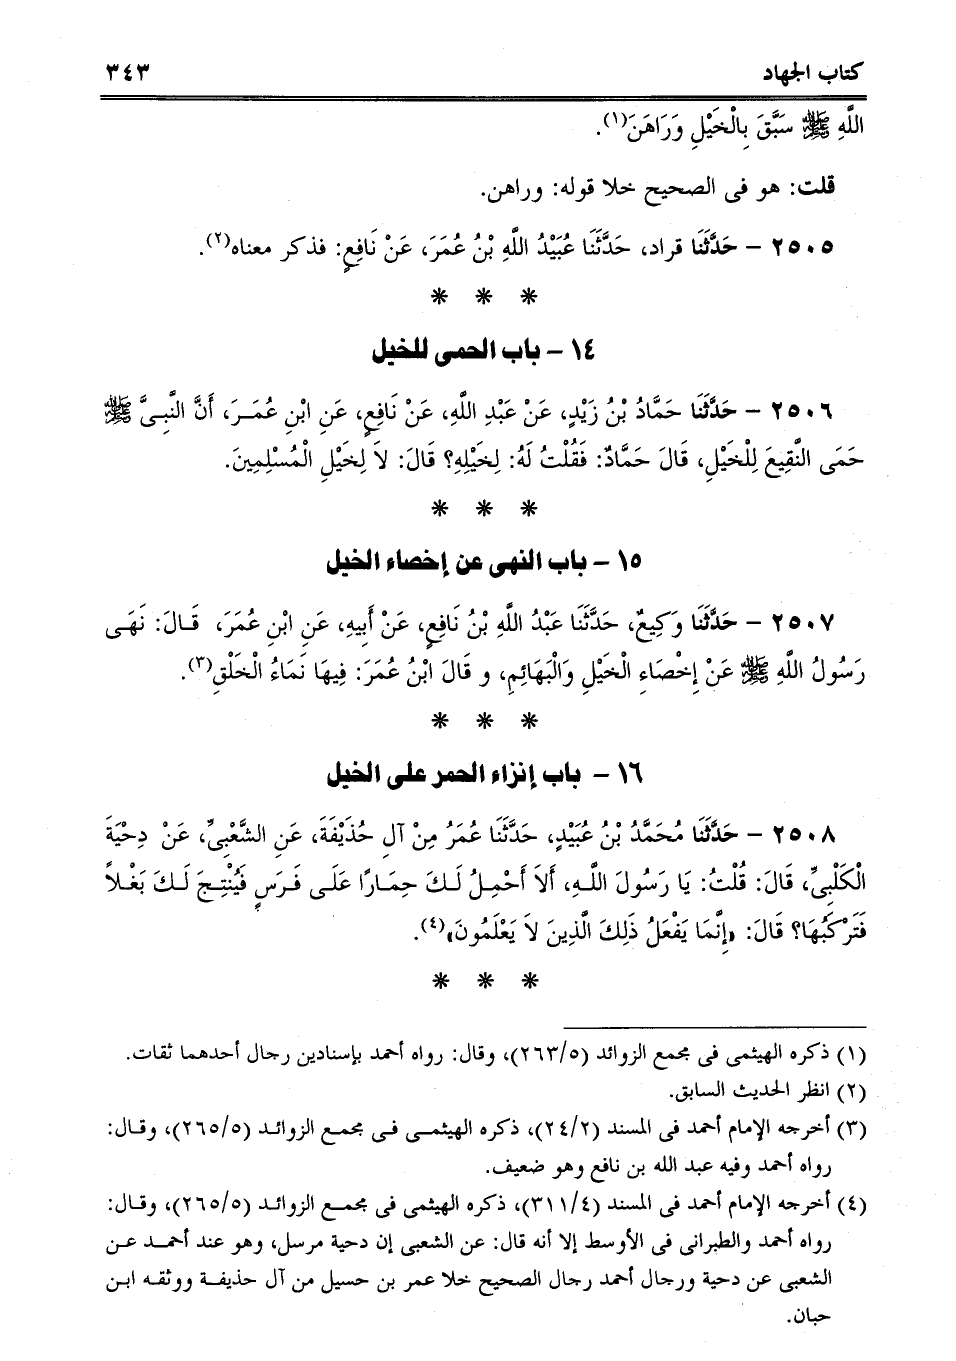 كتاب الجهاد ٣٤٣
اللَّهِ ﷺ سَبَّقَ بِالْخَيْلِ وَرَاهَنَ(١).
قلت: هو فى الصحيح خلا قوله: وراهن.
٢٥٠٥ – حَدَّثَنَا قراد، حَدَّثَنَا عُبَيْدُ اللَّهِ بْنُ عُمَرَ، عَنْ نَافِعٍ: فذكر معناه(٢).
* * *
١٤ – باب الحمى للخيل
٢٥٠٦ – حَدَّثَنَا حَمَّادُ بْنُ زَيْدٍ، عَنْ عَبْدِ اللَّهِ، عَنْ نَافِعٍ، عَنِ ابْنِ عُمَـرَ، أَنَّ النَّبِىَّ ﷺ
حَمَى النَّقِيعَ لِلْخَيْلِ، قَالَ حَمَّادٌ: فَقُلْتُ لَهُ: لِخَيْلِهِ؟ قَالَ: لاَ لِخَيْلِ الْمُسْلِمِينَ.
* * *
١٥ – باب النهى عن إخصاء الخيل
٢٥٠٧ – حَدَّثَنَا وَكِيعٌ، حَدَّثَنَا عَبْدُ اللَّهِ بْنُ نَافِعٍ، عَنْ أَبِيهِ، عَنِ ابْنِ عُمَرَ، قَـالَ: نَهَـى
رَسُولُ اللَّهِ ﷺ عَنْ إِخْصَاءِ الْخَيْلِ وَالْبَهَائِمِ، و قَالَ ابْنُ عُمَرَ: فِيهَا نَمَاءُ الْخَلْقِ(٣).
* * *
١٦ – باب إنزاء الحمر على الخيل
٢٥٠٨ – حَدَّثَنَا مُحَمَّدُ بْنُ عُبَيْدٍ، حَدَّثَنَا عُمَرُ مِنْ آلِ حُذَيْفَةَ، عَنِ الشَّعْبِىِّ، عَنْ دِحْيَةَ
الْكَلْبِىِّ، قَالَ: قُلْتُ: يَا رَسُولَ اللَّـهِ، أَلاَ أَحْمِـلُ لَـكَ حِمَـارًا عَلَـى فَـرَسٍ فَيُنْتِـجَ لَـكَ بَغْـلاً
فَتَرْكَبُهَا؟ قَالَ: «إِنَّمَا يَفْعَلُ ذَلِكَ الَّذِينَ لاَ يَعْلَمُونَ»(٤).
* * *
(١) ذكره الهيثمى فى مجمع الزوائد (٢٦٣/٥)، وقال: رواه أحمد بإسنادين رجال أحدهما ثقات.
(٢) انظر الحديث السابق.
(٣) أخرجه الإمام أحمد فى المسند (٢٤/٢)، ذكره الهيثمـى فـى مجمـع الزوائـد (٢٦٥/٥)، وقـال:
رواه أحمد وفيه عبد الله بن نافع وهو ضعيف.
(٤) أخرجه الإمام أحمد فى المسند (٣١١/٤)، ذكره الهيثمى فى مجمـع الزوائـد (٢٦٥/٥)، وقـال:
رواه أحمد والطبرانى فى الأوسط إلا أنه قال: عن الشعبى إن دحية مرسل، وهو عند أحمـد عـن
الشعبى عن دحية ورجال أحمد رجال الصحيح خلا عمر بن حسيل من آل حذيفـة ووثقـه ابـن
حبان.